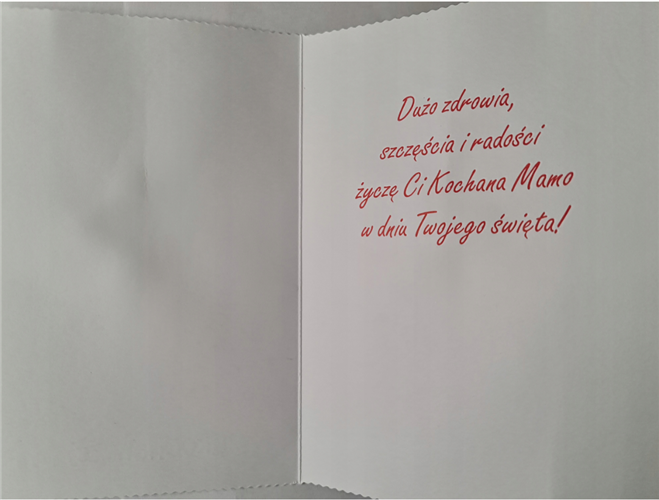 Dużo zdrowia,
szczęścia i radości
życzę Ci Kochana Mamo
w dniu Twojego święta!